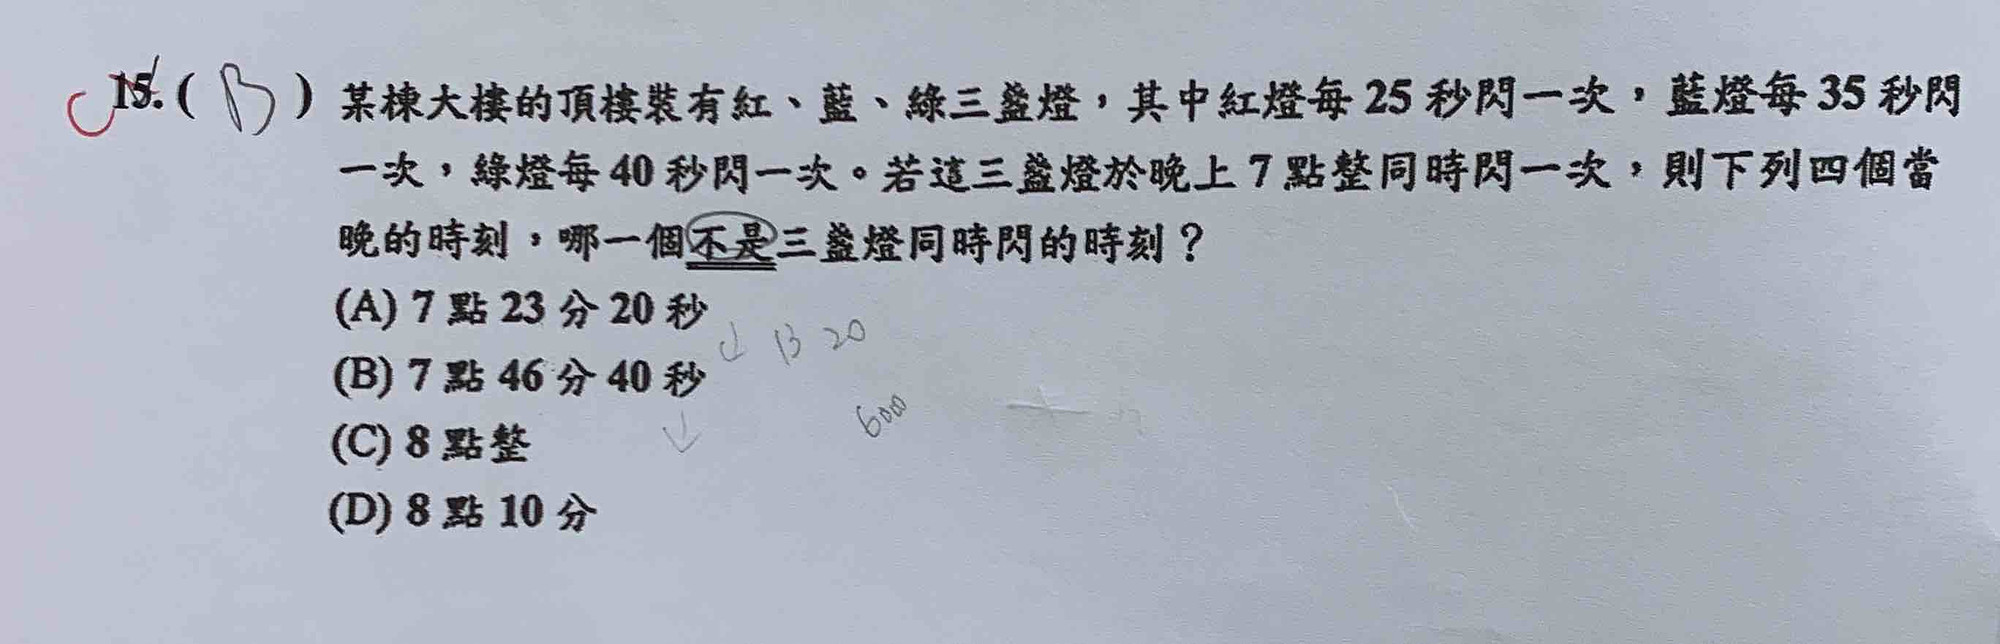 C 15. ( B ) 某棟大樓的頂樓裝有紅、藍、綠三盞燈，其中紅燈每 25 秒閃一次，藍燈每 35 秒閃
一次，綠燈每 40 秒閃一次。若這三盞燈於晚上 7 點整同時閃一次，則下列四個當
晚的時刻，哪一個不是三盞燈同時閃的時刻？
(A) 7 點 23 分 20 秒
↓ 13 20
(B) 7 點 46 分 40 秒
↓ 600
(C) 8 點整
(D) 8 點 10 分